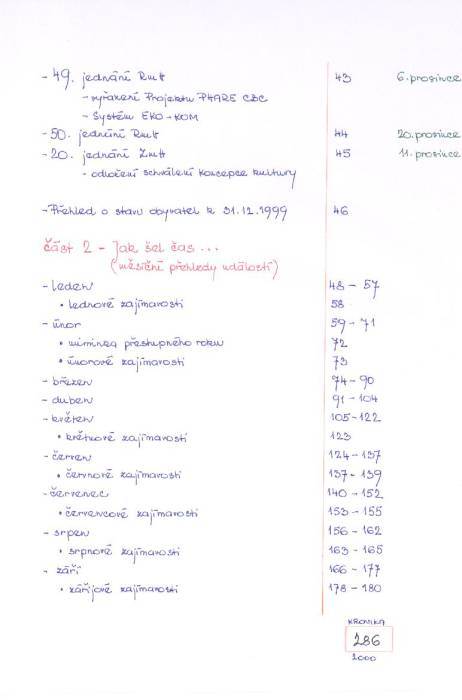 - 49. jednání RMt 43 6. prosince
- vyřazení Projektu PHARE CBC
- Systém EKO-KOM
- 50. jednání RMt 44 20. prosince
- 20. jednání ZMt 45 11. prosince
- odložení schválení Koncepce kultury
- Přehled o stavu obyvatel k 31.12.1999 46
Část 2 - Jak šel čas ...
(měsíční přehledy událostí)
- leden 48 - 57
• lednové zajímavosti 58
- únor 59 - 71
• miminka přestupného roku 72
• únorové zajímavosti 73
- březen 74 - 90
- duben 91 - 104
- květen 105 - 122
• květnové zajímavosti 123
- červen 124 - 137
• červnové zajímavosti 137 - 139
- červenec 140 - 152
• červencové zajímavosti 153 - 155
- srpen 156 - 162
• srpnové zajímavosti 163 - 165
- září 166 - 177
• zářijové zajímavosti 178 - 180
KRONIKA
286
2000